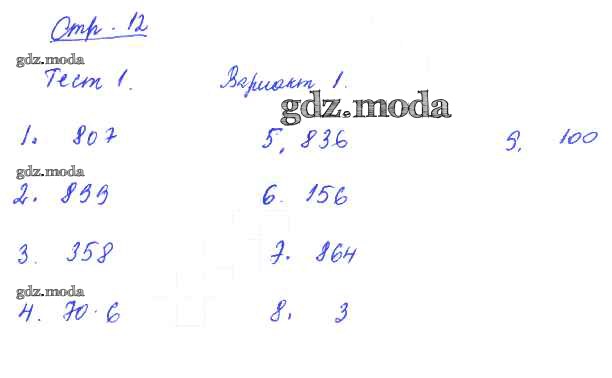 Стр. 12
gdz.moda
Тест 1. Вариант 1.
gdz.moda
1. 807 5, 836 9. 100
gdz.moda
2. 899 6. 156
3. 358 7. 864
gdz.moda
4. 70·6 8. 3